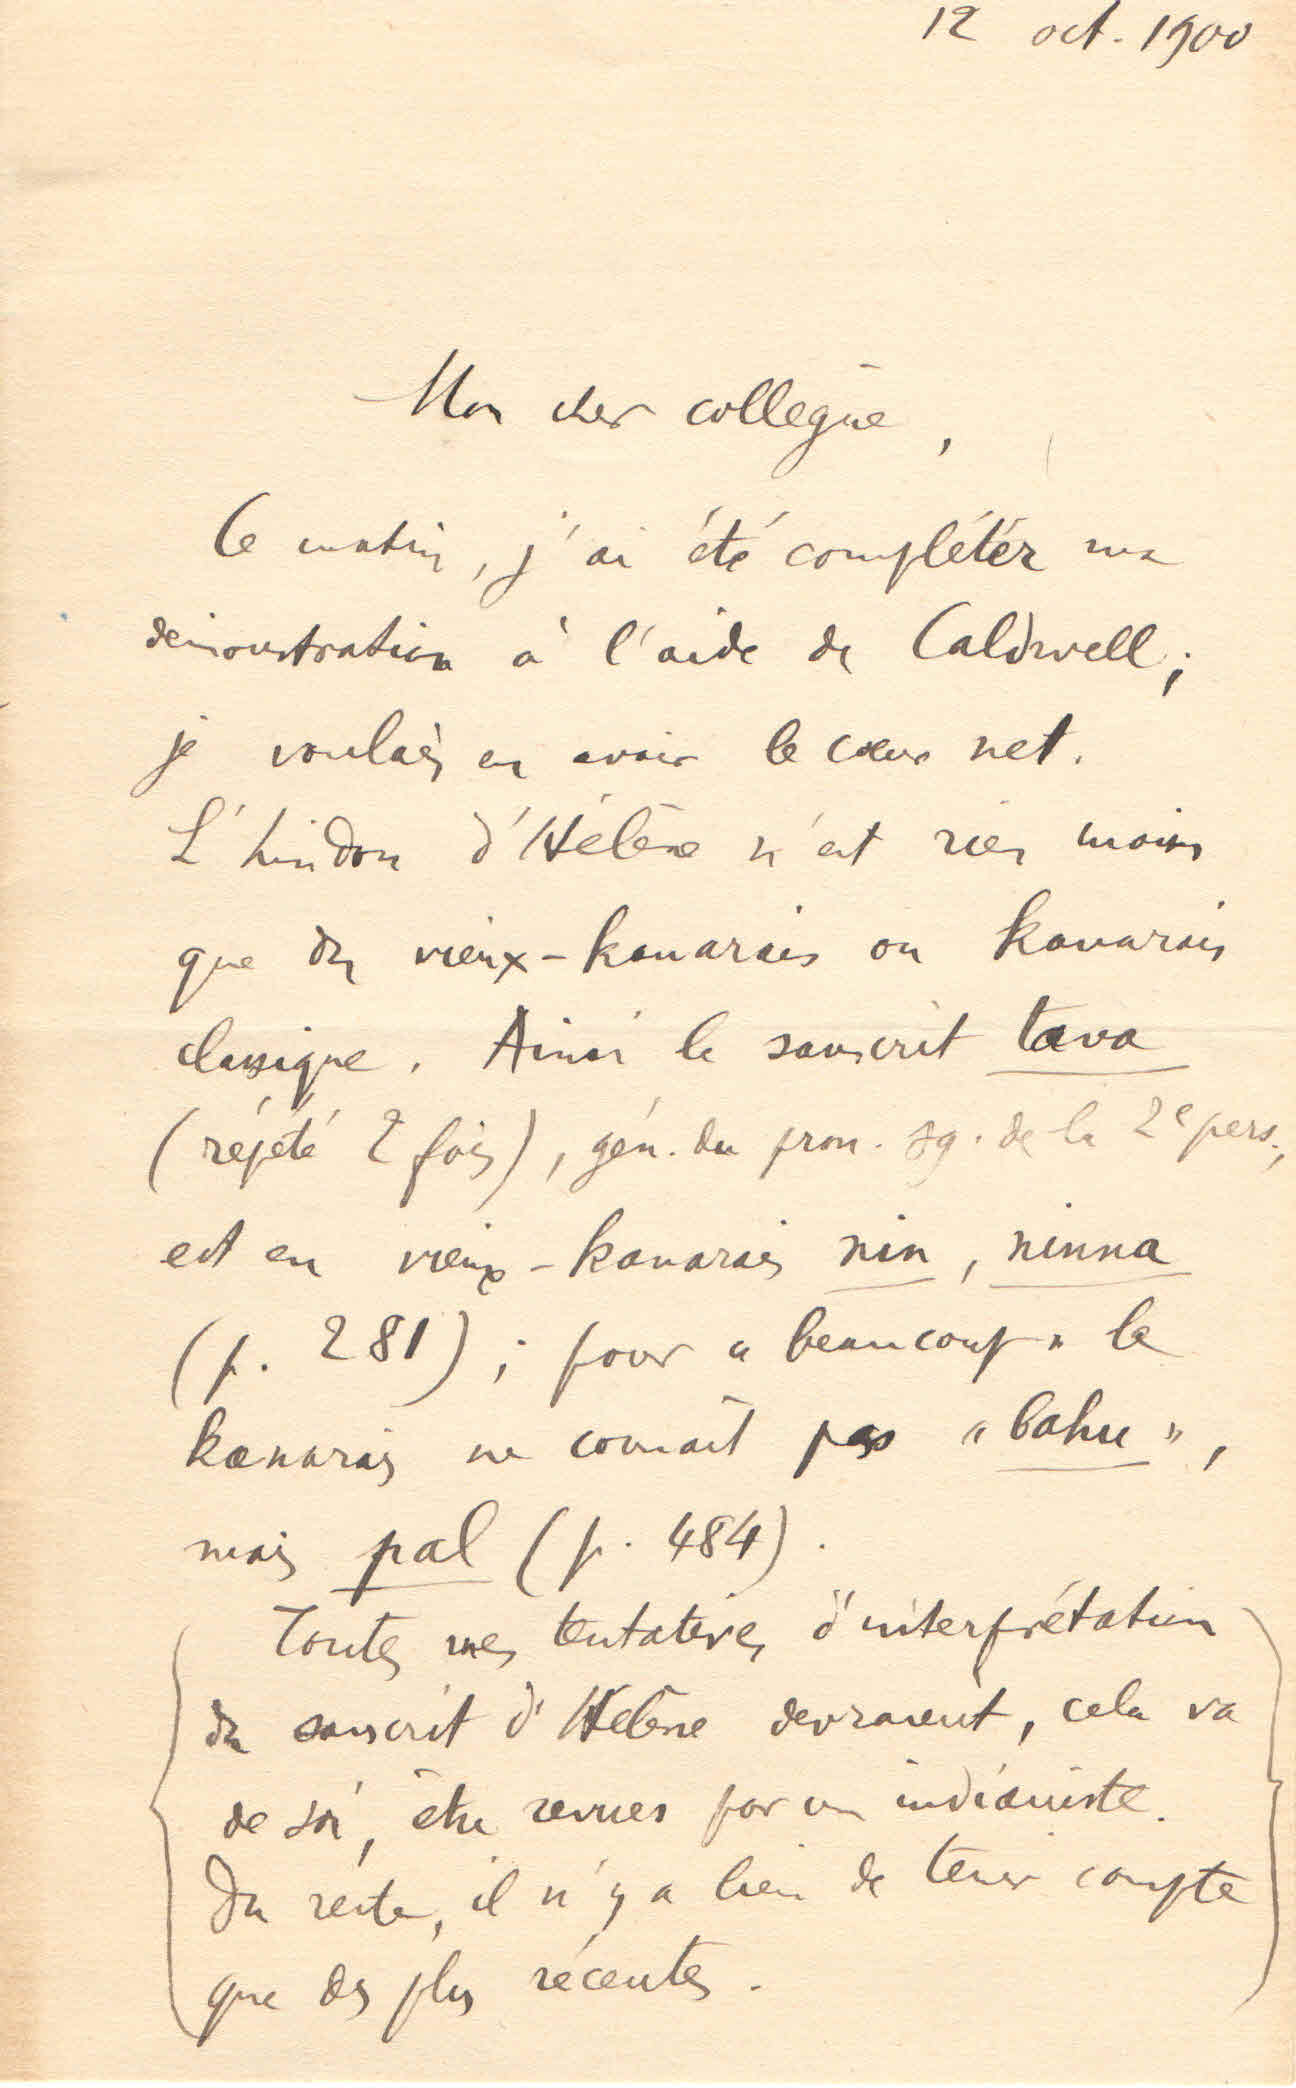 12 oct. 1900
Mon cher collègue,
Ce matin, j'ai été compléter ma
démonstration à l'aide de Caldwell;
je voulais en avoir le cœur net.
L'hindou d'Hélène n'est rien moins
que du vieux-kanarais ou kanarais
classique. Ainsi le sanscrit tava
(répété 2 fois), gén. du pron. sg. de la 2e pers.,
est en vieux-kanarais nin, ninna
(p. 281); pour « beaucoup » le
kanarais ne connaît pas « bahu »,
mais pal (p. 484).
Toutes mes tentatives d'interprétation
du sanscrit d'Hélène devraient, cela va
de soi, être revues par un indianiste.
Du reste, il n'y a lieu de tenir compte
que des plus récentes.